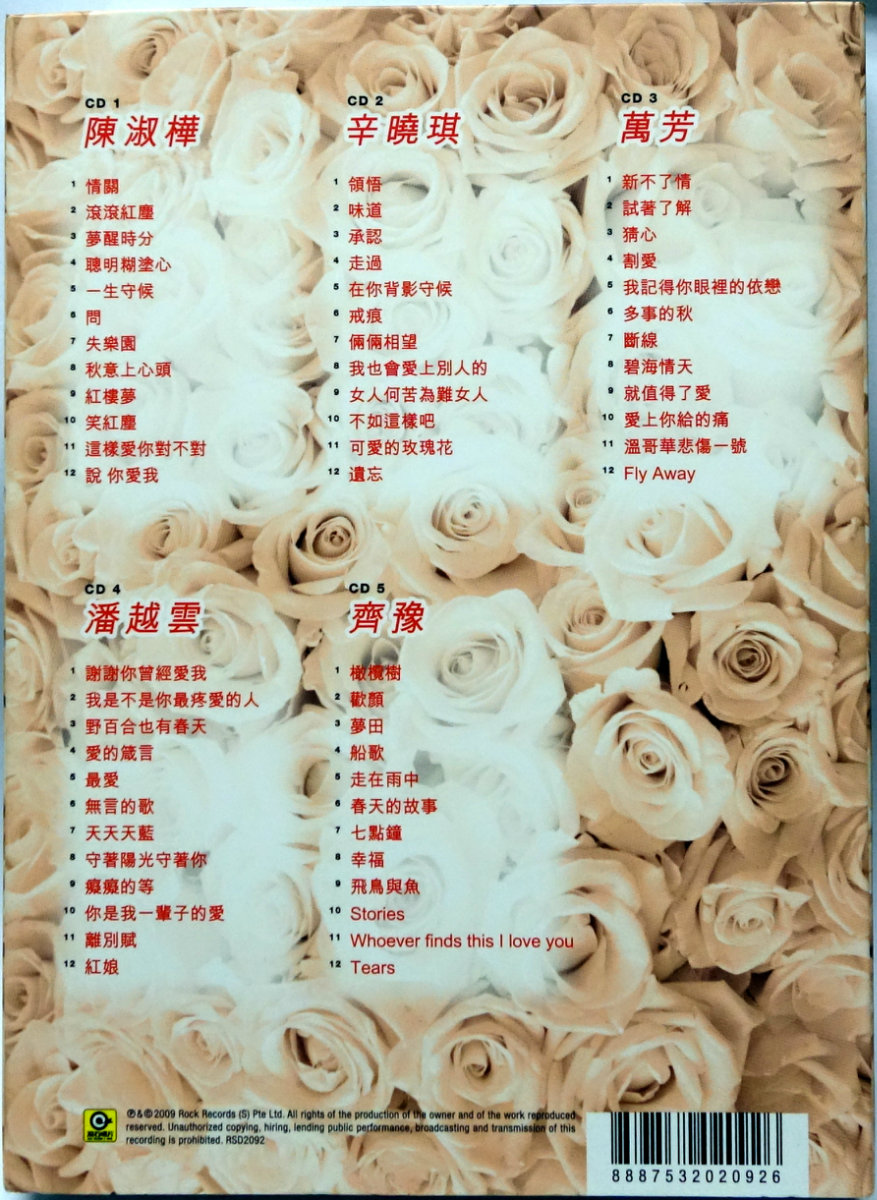 CD 1
陳淑樺
1 情關
2 滾滾紅塵
3 夢醒時分
4 聰明糊塗心
5 一生守候
6 問
7 失樂園
8 秋意上心頭
9 紅樓夢
10 笑紅塵
11 這樣愛你對不對
12 說 你愛我
CD 2
辛曉琪
1 領悟
2 味道
3 承認
4 走過
5 在你背影守候
6 戒痕
7 倆倆相望
8 我也會愛上別人的
9 女人何苦為難女人
10 不如這樣吧
11 可愛的玫瑰花
12 遺忘
CD 3
萬芳
1 新不了情
2 試著了解
3 猜心
4 割愛
5 我記得你眼裡的依戀
6 多事的秋
7 斷線
8 碧海情天
9 就值得了愛
10 愛上你給的痛
11 溫哥華悲傷一號
12 Fly Away
CD 4
潘越雲
1 謝謝你曾經愛我
2 我是不是你最疼愛的人
3 野百合也有春天
4 愛的箴言
5 最愛
6 無言的歌
7 天天天藍
8 守著陽光守著你
9 癡癡的等
10 你是我一輩子的愛
11 離別賦
12 紅娘
CD 5
齊豫
1 橄欖樹
2 歡顏
3 夢田
4 船歌
5 走在雨中
6 春天的故事
7 七點鐘
8 幸福
9 飛鳥與魚
10 Stories
11 Whoever finds this I love you
12 Tears
℗&©2009 Rock Records (S) Pte Ltd. All rights of the production of the owner and of the work reproduced
reserved. Unauthorized copying, hiring, lending public performance, broadcasting and transmission of this
recording is prohibited. RSD2092
8887532020926